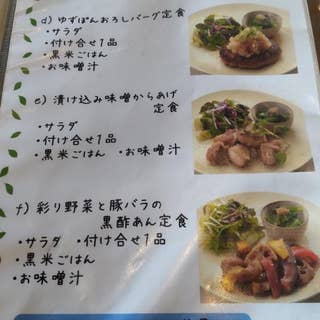 d) ゆずぽんおろしバーグ定食
・サラダ
・付け合せ1品
・黒米ごはん
・お味噌汁
e) 漬け込み味噌からあげ
定食
・サラダ
・付け合せ1品
・黒米ごはん ・お味噌汁
f) 彩り野菜と豚バラの
黒酢あん定食
・サラダ ・付け合せ1品
・黒米ごはん
・お味噌汁